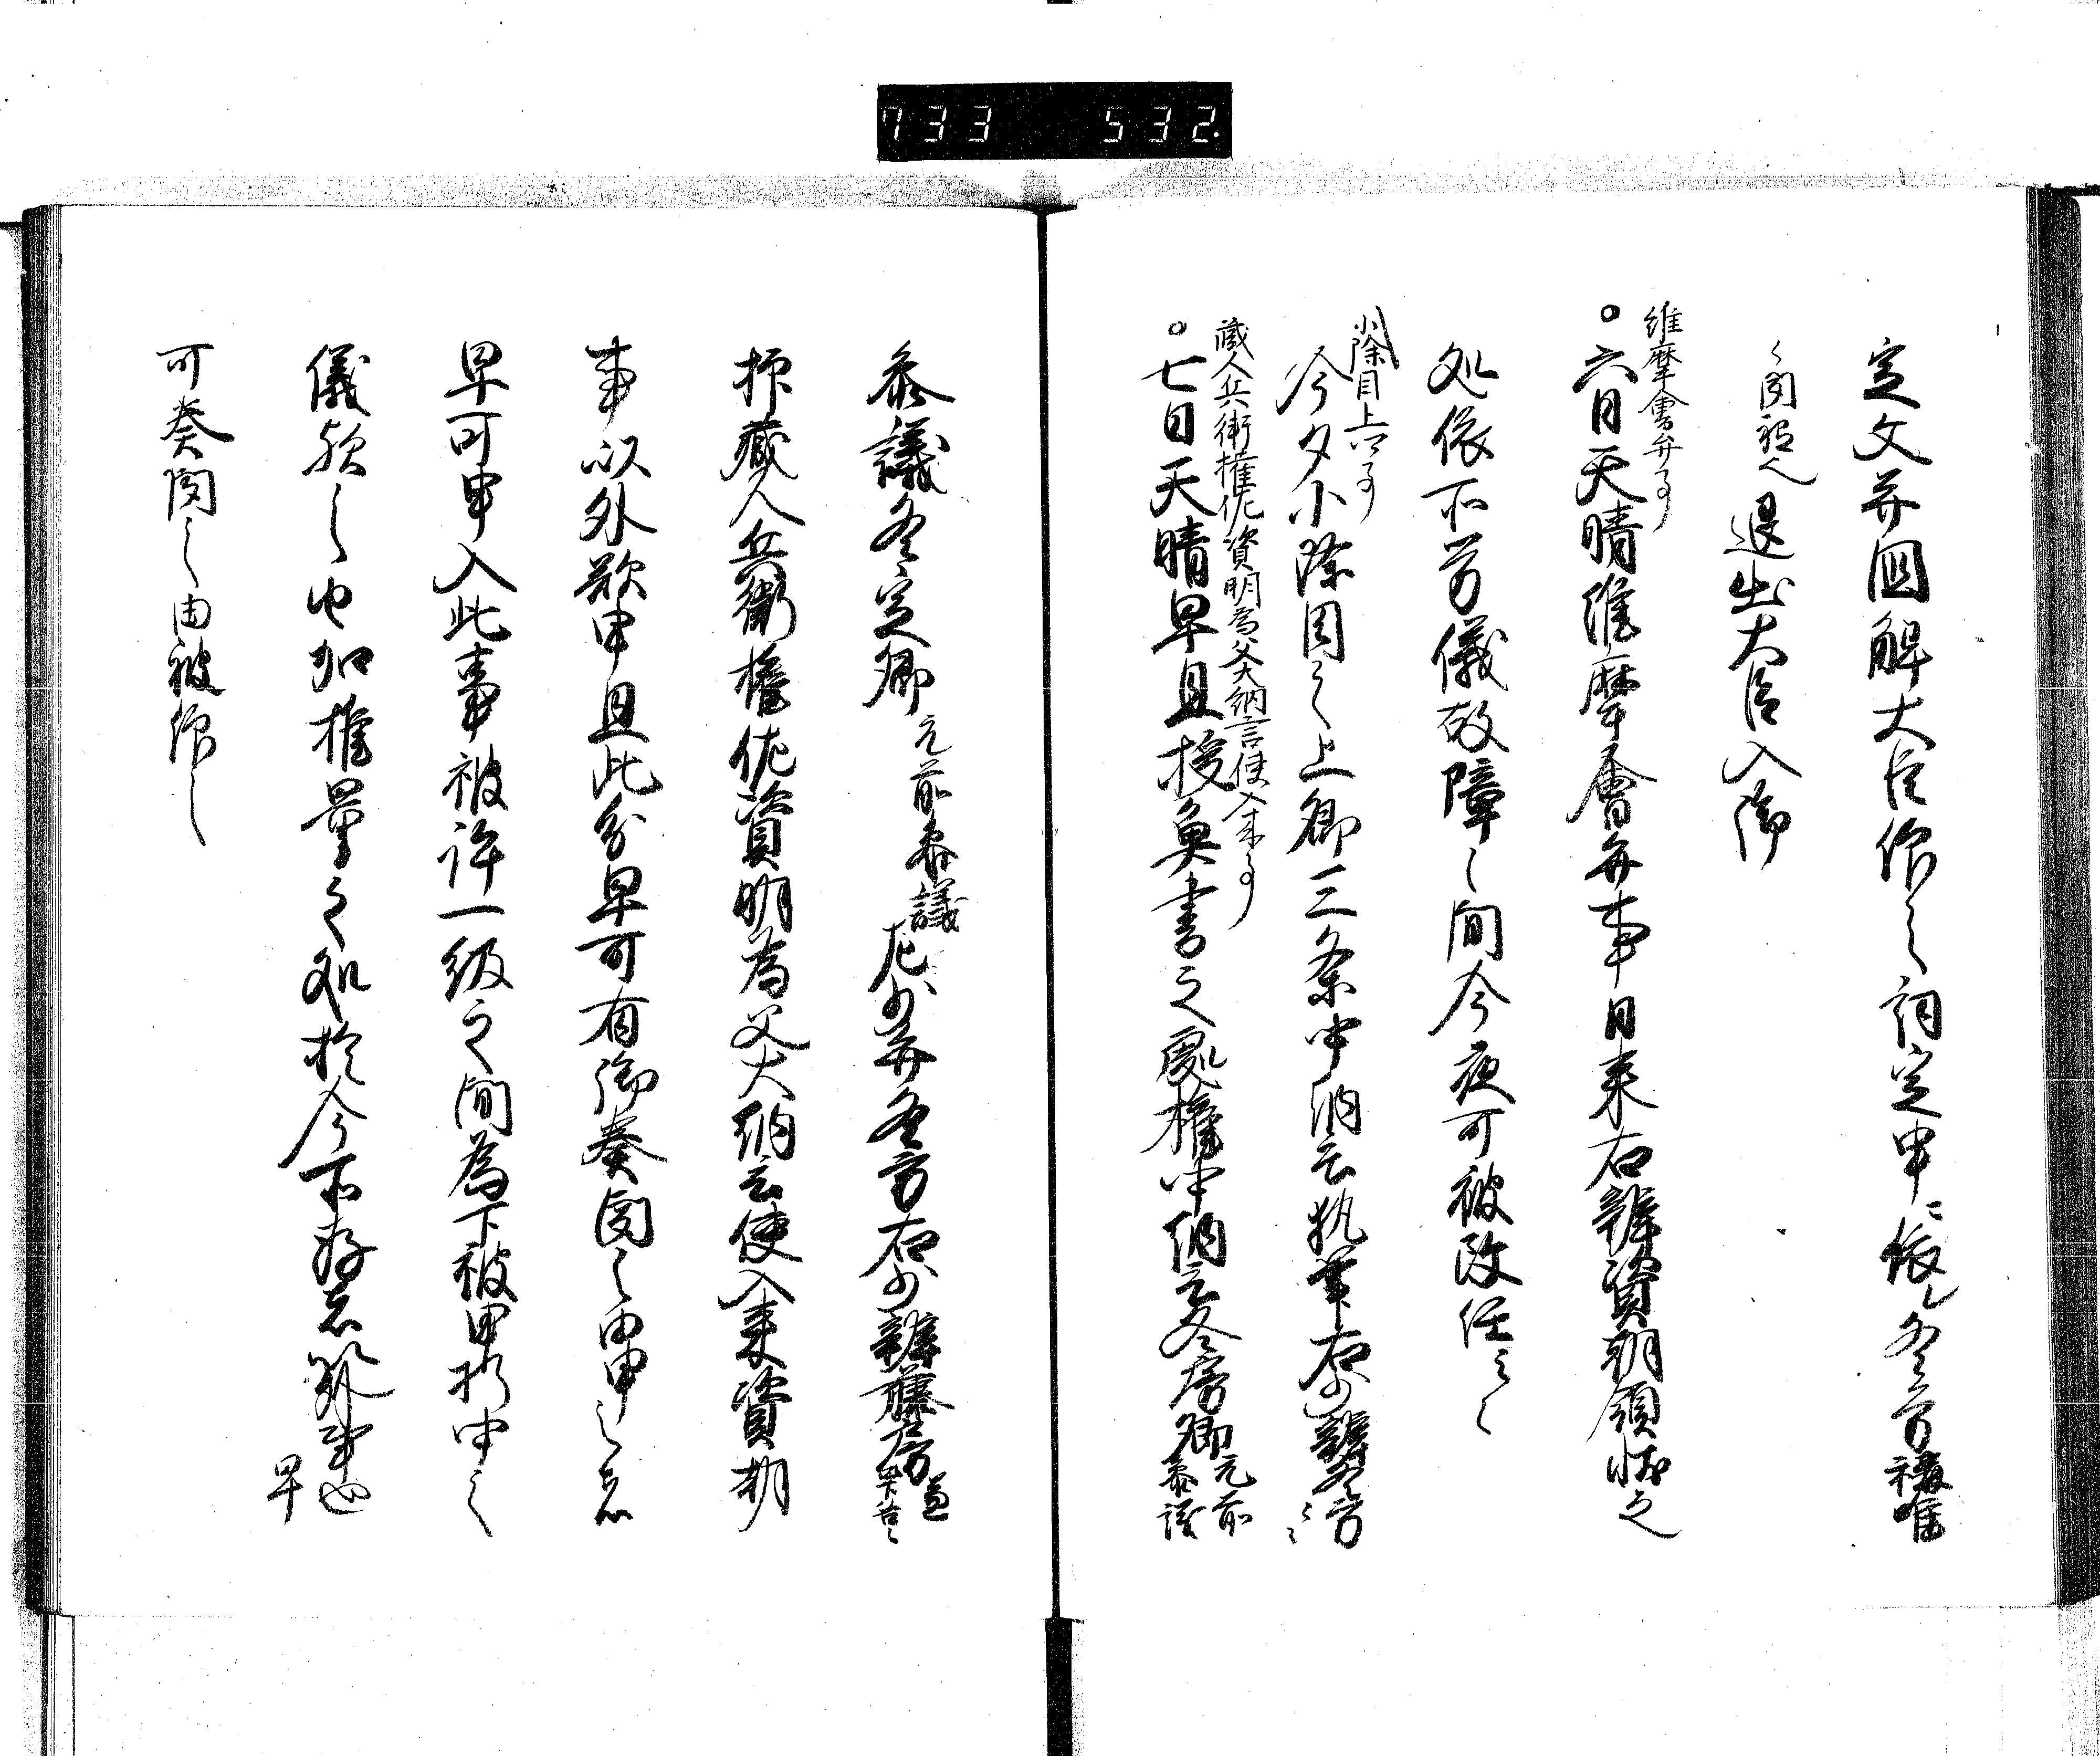 733 532.
定文并国解大臣仰之詞定申ニ依冬方
之間被人退出大臣入御
維摩會弁事
○六日天晴維摩會弁事日来右辨資朝領状之
処依不芳儀故障之間今夜可被改任云々
小除目上口事
今夕小除目云々上卿三条中納言執筆右少辨冬方云々
蔵人兵衛権佐資明為父大納言使入来事
○七日天晴早旦授魚書之乱権中納言冬房卿元前参議
参議冬定卿元前参議左少弁冬方右少辨藤房
抑蔵人兵衛権佐資明為父大納言使入来資朝
事以外歎申且此分早可有御奏聞之由申之者
早可申入此事被許一級之間為下被申状申之
儀歟之由加推量之処於今不存知事也早
可奏聞之由被仰之